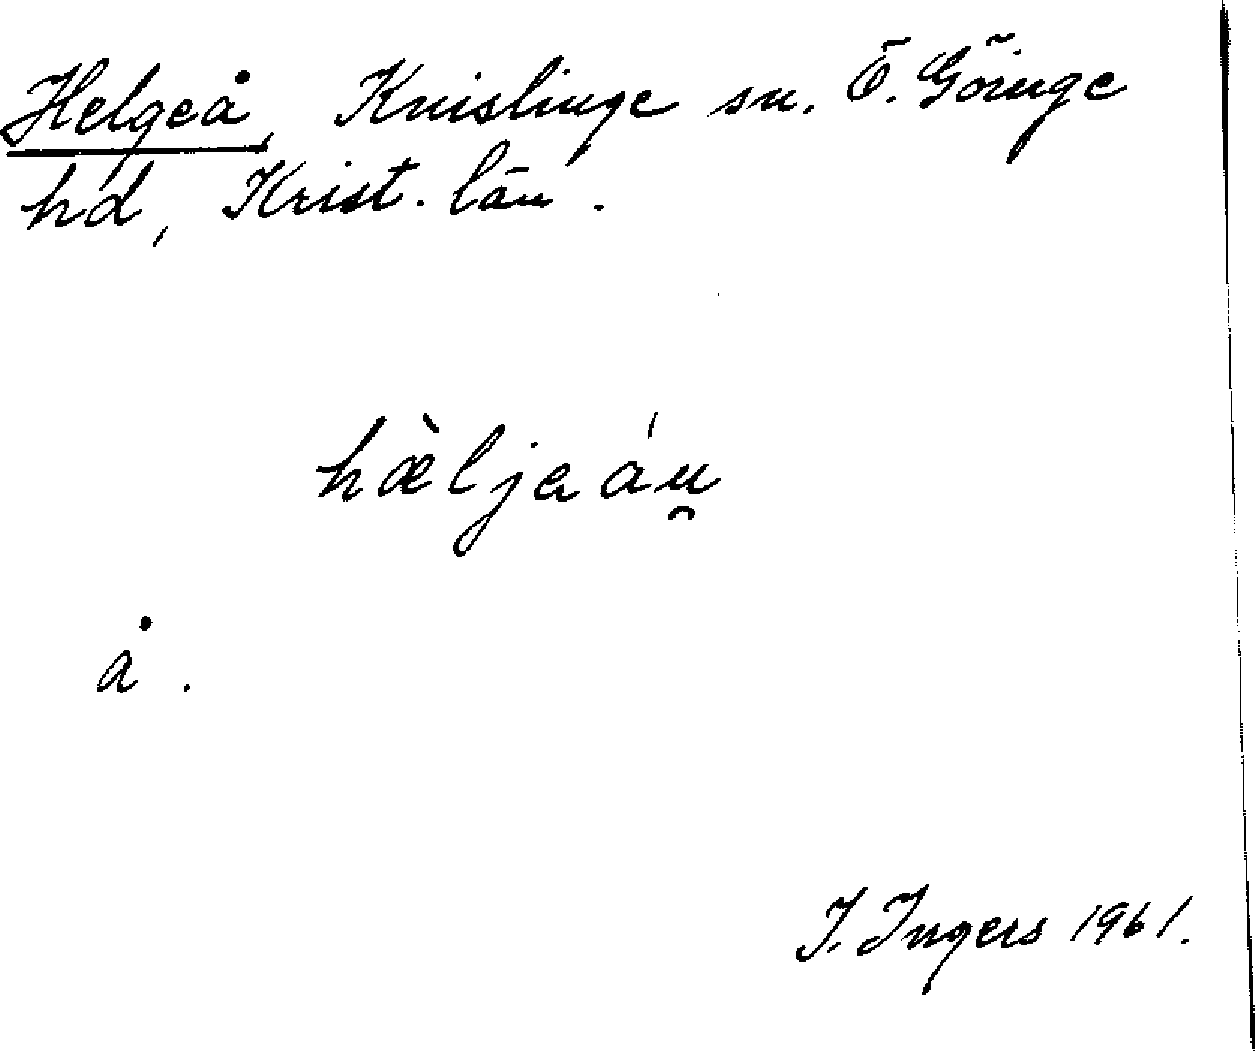 Helgeå, Knislinge sn. Ö. Göinge
hd, Krist. län.
hæ̀ljaáu̯
å.
I. Ingers 1961.